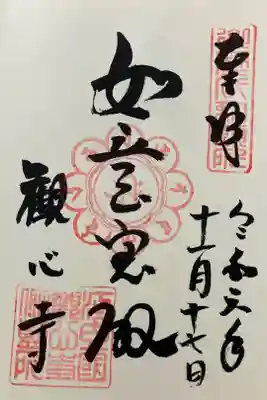 奉拝
令和 年
十一月十七日
如意宝殿
觀心寺